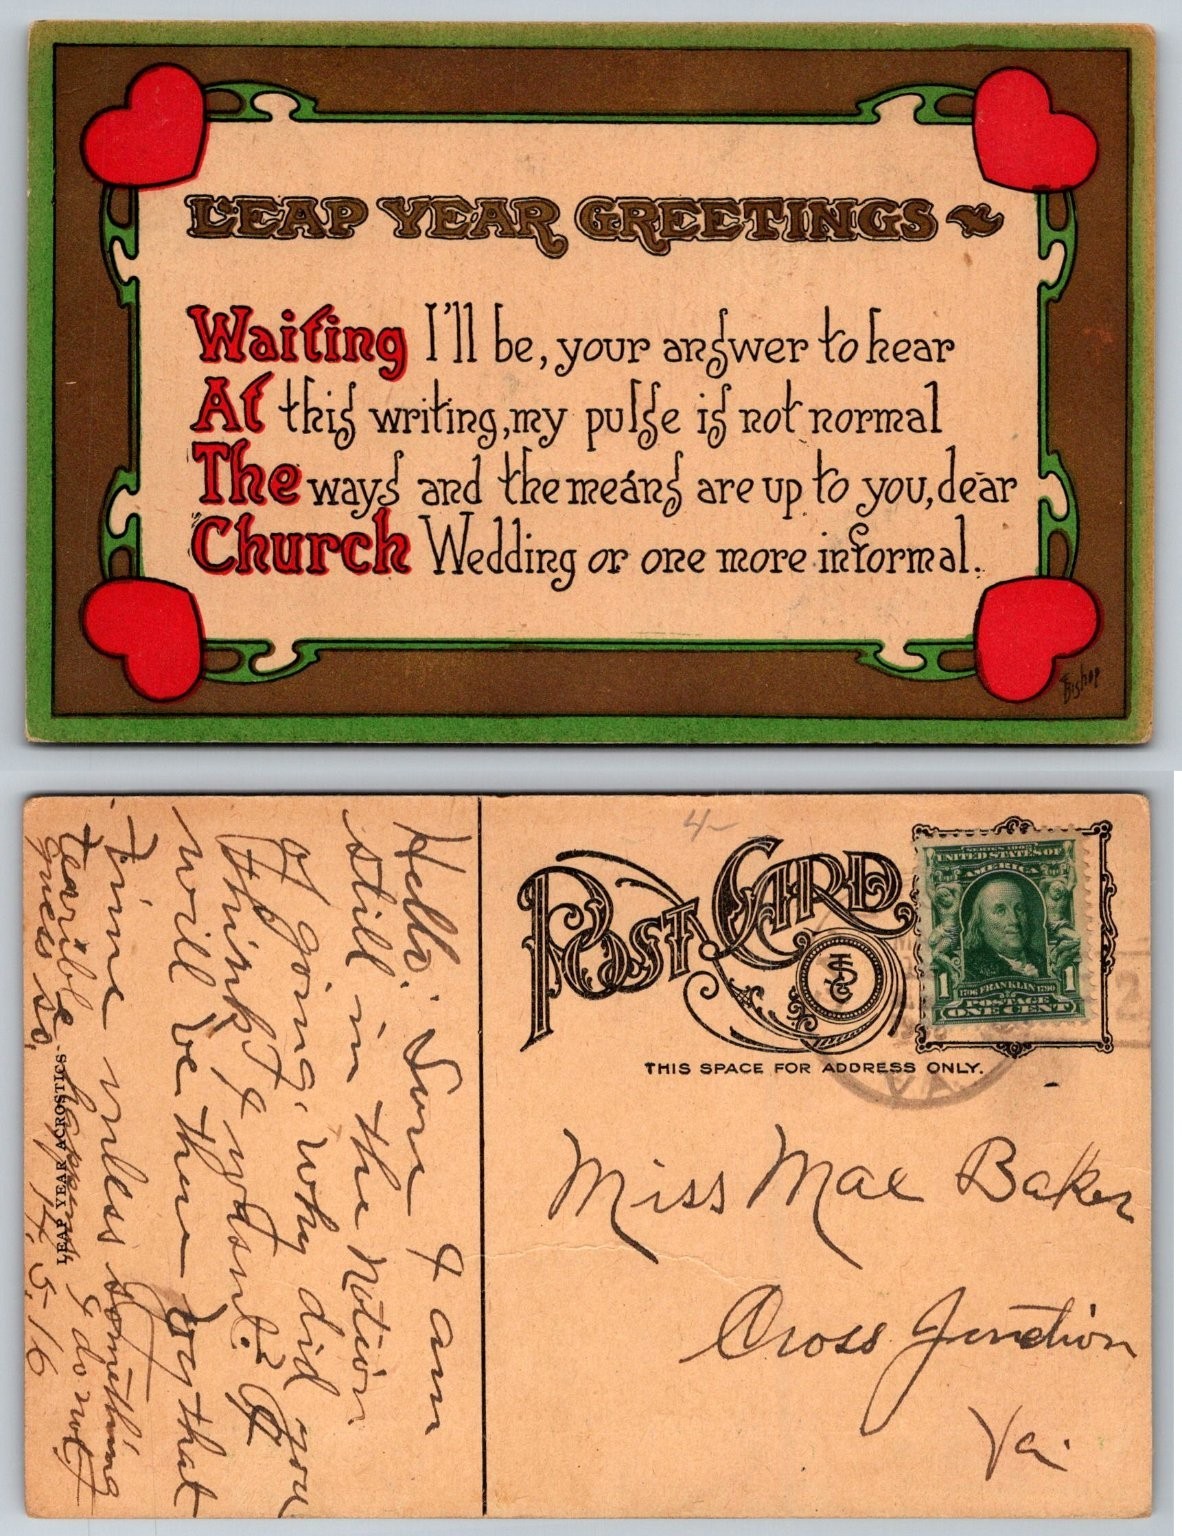 LEAP YEAR GREETINGS
Waiting I'll be, your answer to hear
At this writing, my pulse is not normal
The ways and the means are up to you, dear
Church Wedding or one more informal.
Bishop
4-
POST CARD
THIS SPACE FOR ADDRESS ONLY.
SERIES 1902
UNITED STATES OF
AMERICA
1 1
1706 FRANKLIN 1790
POSTAGE
ONE CENT
2
VA.
Miss Mae Baker
Cross Junction
Va.
Hello. Sure I am
still in the Notion
of going. Why did you
think I wasnt? 
will be there by that
time unless something
tearible happens I do not
guess so,
H. 5-16
LEAP YEAR ACROSTICS